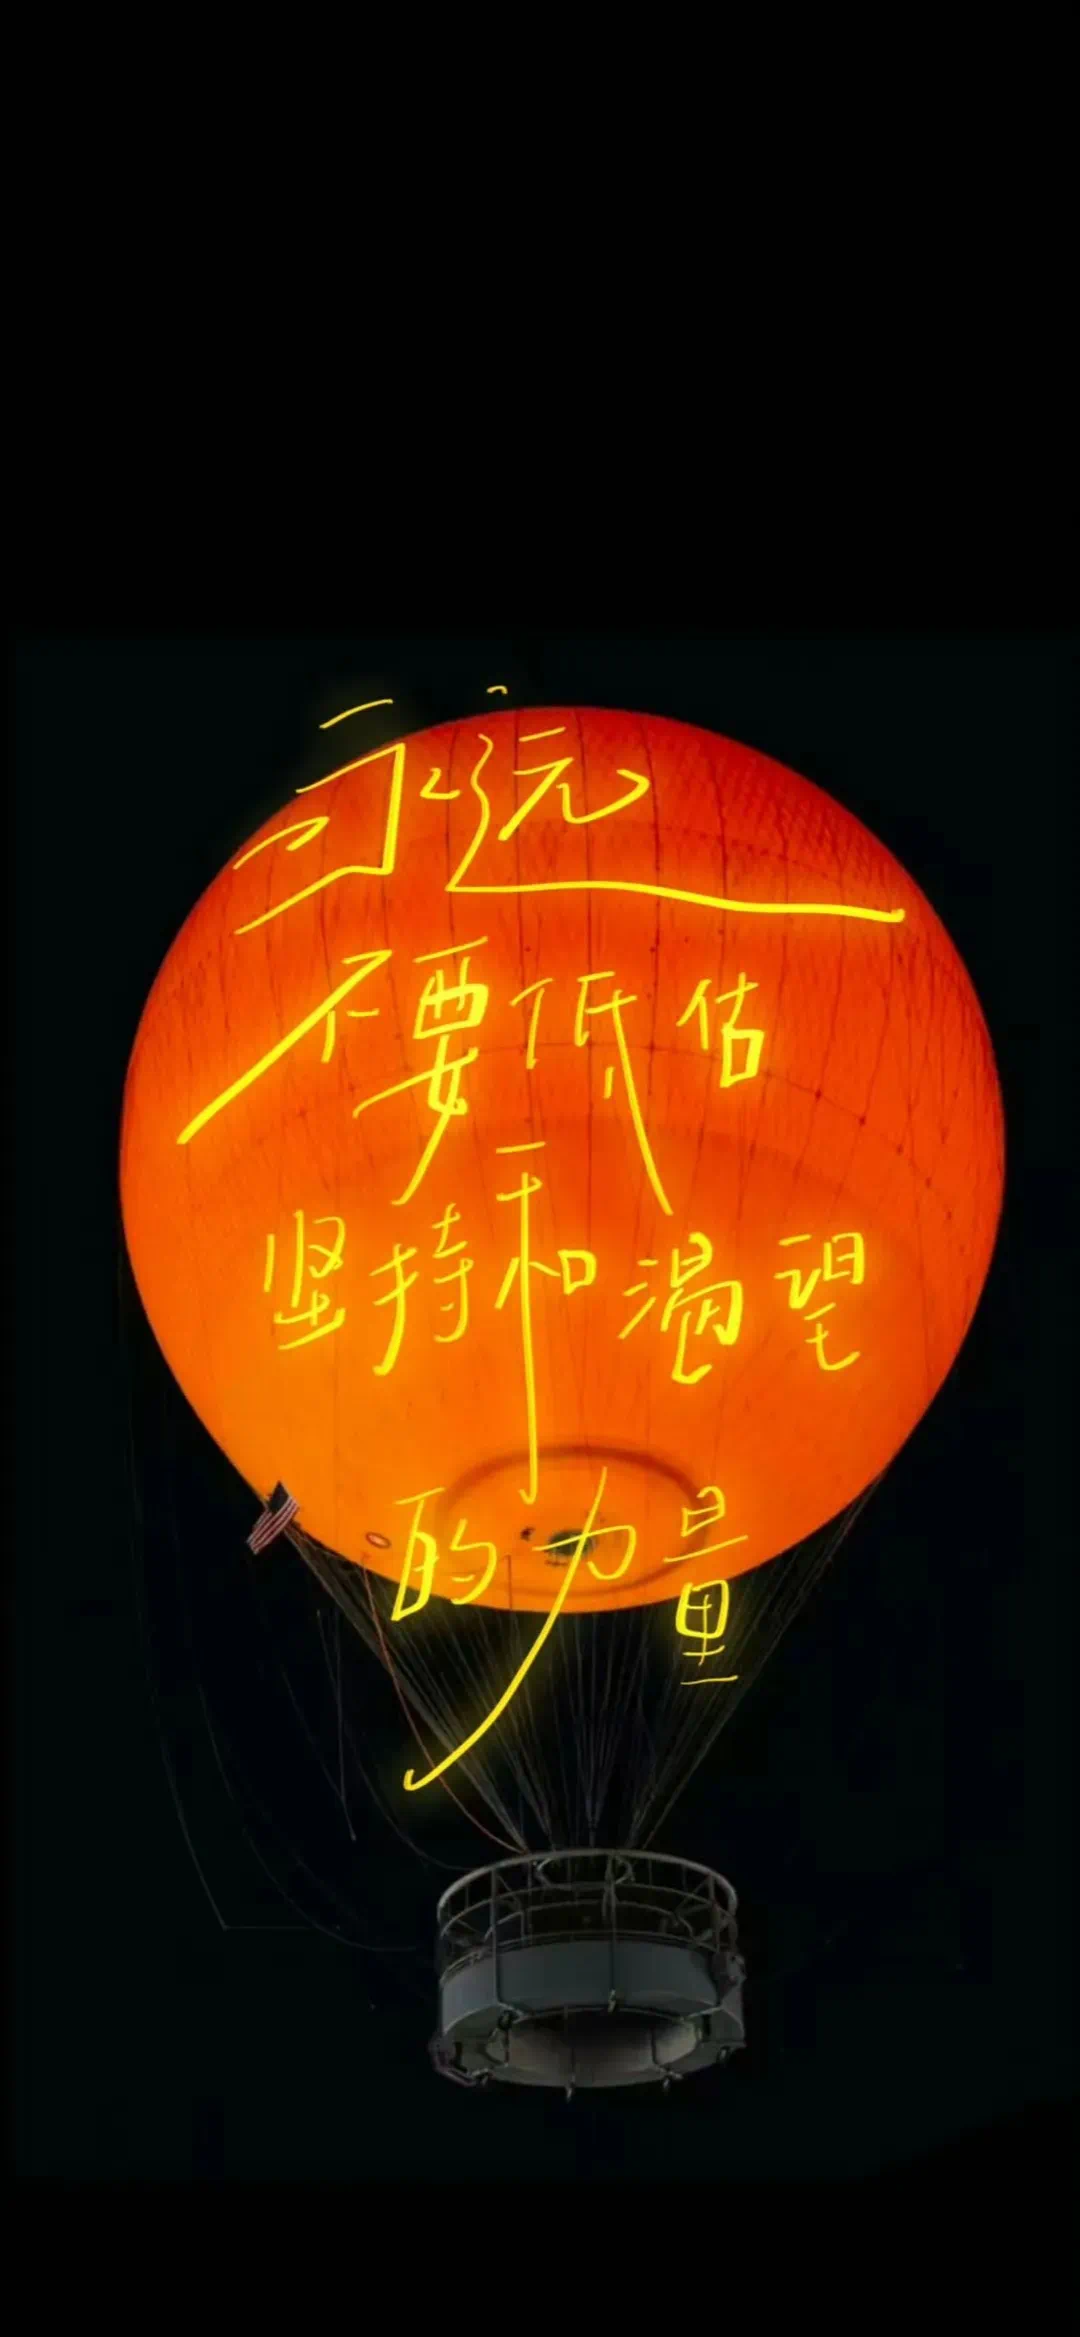 永远
不要低估
坚持和渴望
的力量